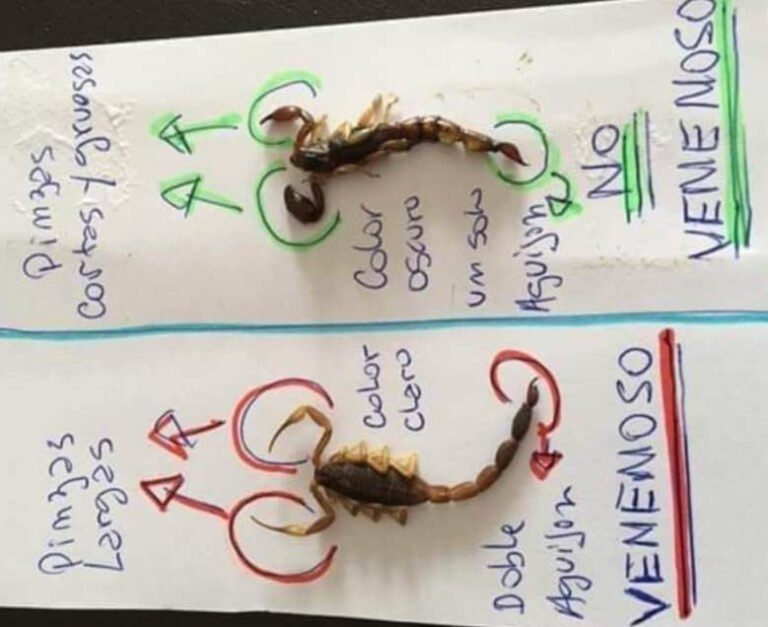 Pinzas
Largas
Color
claro
Doble
Aguijon
VENENOSO
Pinzas
cortas y gruesas
Color
oscuro
un solo
Aguijon
NO
VENENOSO